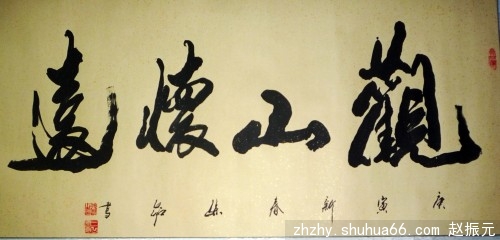 觀山懷遠
庚寅新春
zhzhy.shuhua66.com 赵振元